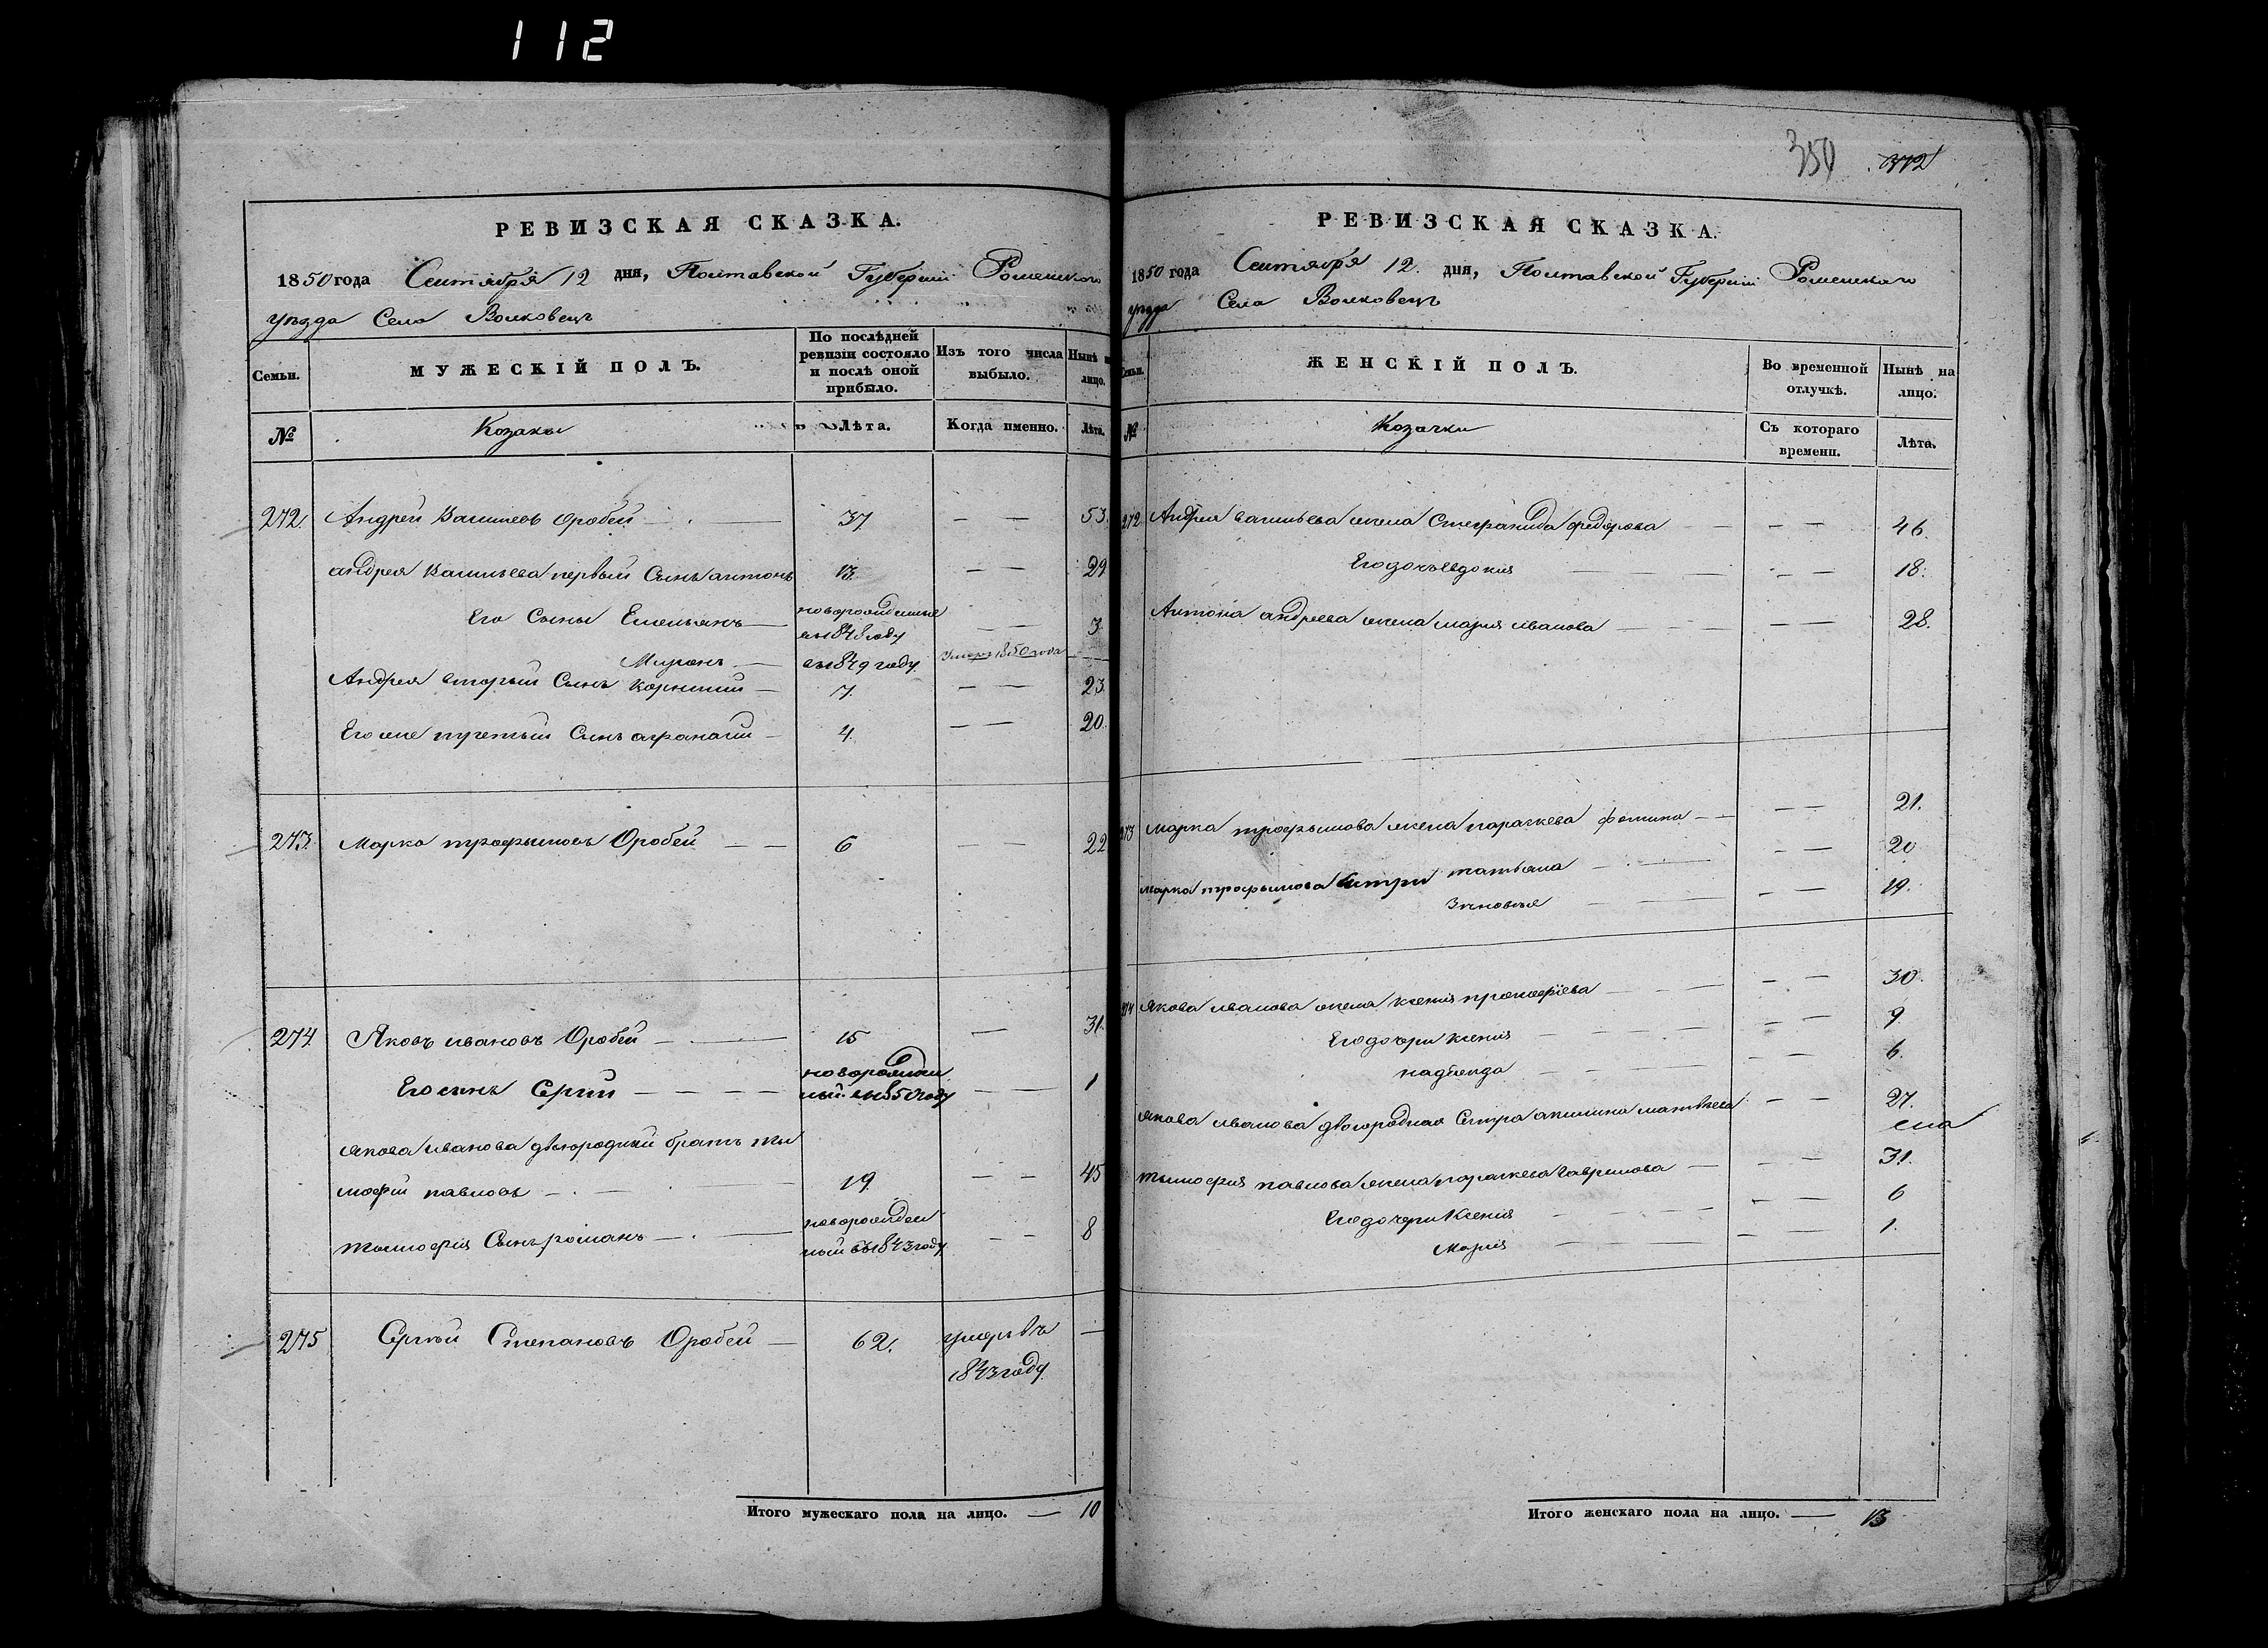 112
РЕВИЗСКАЯ СКАЗКА.
1850 года Сентября 12 дня, Полтавской Губернии Роменского
уезда Села Волковецъ
Семьи.
МУЖЕСКІЙ ПОЛЪ.
По послѣдней
ревизіи состояло
и послѣ оной
прибыло.
Изъ того числа
выбыло.
Нынѣ н
лицо.
№
Козаки
Лѣта.
Когда именно.
Лѣта.
272. Андрей Васильевъ Оробей 37 53.
андрея Васильева первый Сынъ антонъ 13. 29
Его Сыны Емельянъ новорожденные въ 1848 году 3
Миронъ въ 1849 году Умеръ 1850 года
Андрея вторый Сынъ Корнилий 7. 23.
Его же третий Сынъ афанасий 4. 20.
273. Марко трофымовъ Оробей 6 22
274. Яковъ ивановъ Оробей 15 31.
Его сынъ Сергий новорожден
ный въ 1850 году 1
якова иванова двоюродний братъ ты
мофий павловъ 19. 45
тымофия Сынъ романъ новорожден
ный въ 1843 году 8
275 Сергъй Степановъ Оробей 62. умеръ въ
1843 году.
Итого мужескаго пола на лицо. 10
350 372
РЕВИЗСКАЯ СКАЗКА.
1850 года Сентября 12. дня, Полтавской Губернии Роменского
уезда Села Волковецъ
Семьи.
ЖЕНСКІЙ ПОЛЪ.
Во временной
отлучкѣ.
Нынѣ на
лицо.
№
Козачки
Съ котораго
времени.
Лѣта.
272 Андрея васильева жена Стефанида федорова 46.
Его дочь евдокия 18.
Антона андреева жена мария иванова 28.
273 Марка трофымова жена параскева фомина 21.
марка трофымова Сестри татьяна 20
Зиновья 19.
274 Якова иванова жена ксения прокофiева 30.
Его дочери ксения 9.
надежда 6.
якова иванова двоюродная Сестра акилина матвеева 27.
тымофия павлова жена параскева гаврилова 31.
Его дочери Ксения 6
Мария 1.
Итого женскаго пола на лицо. 13